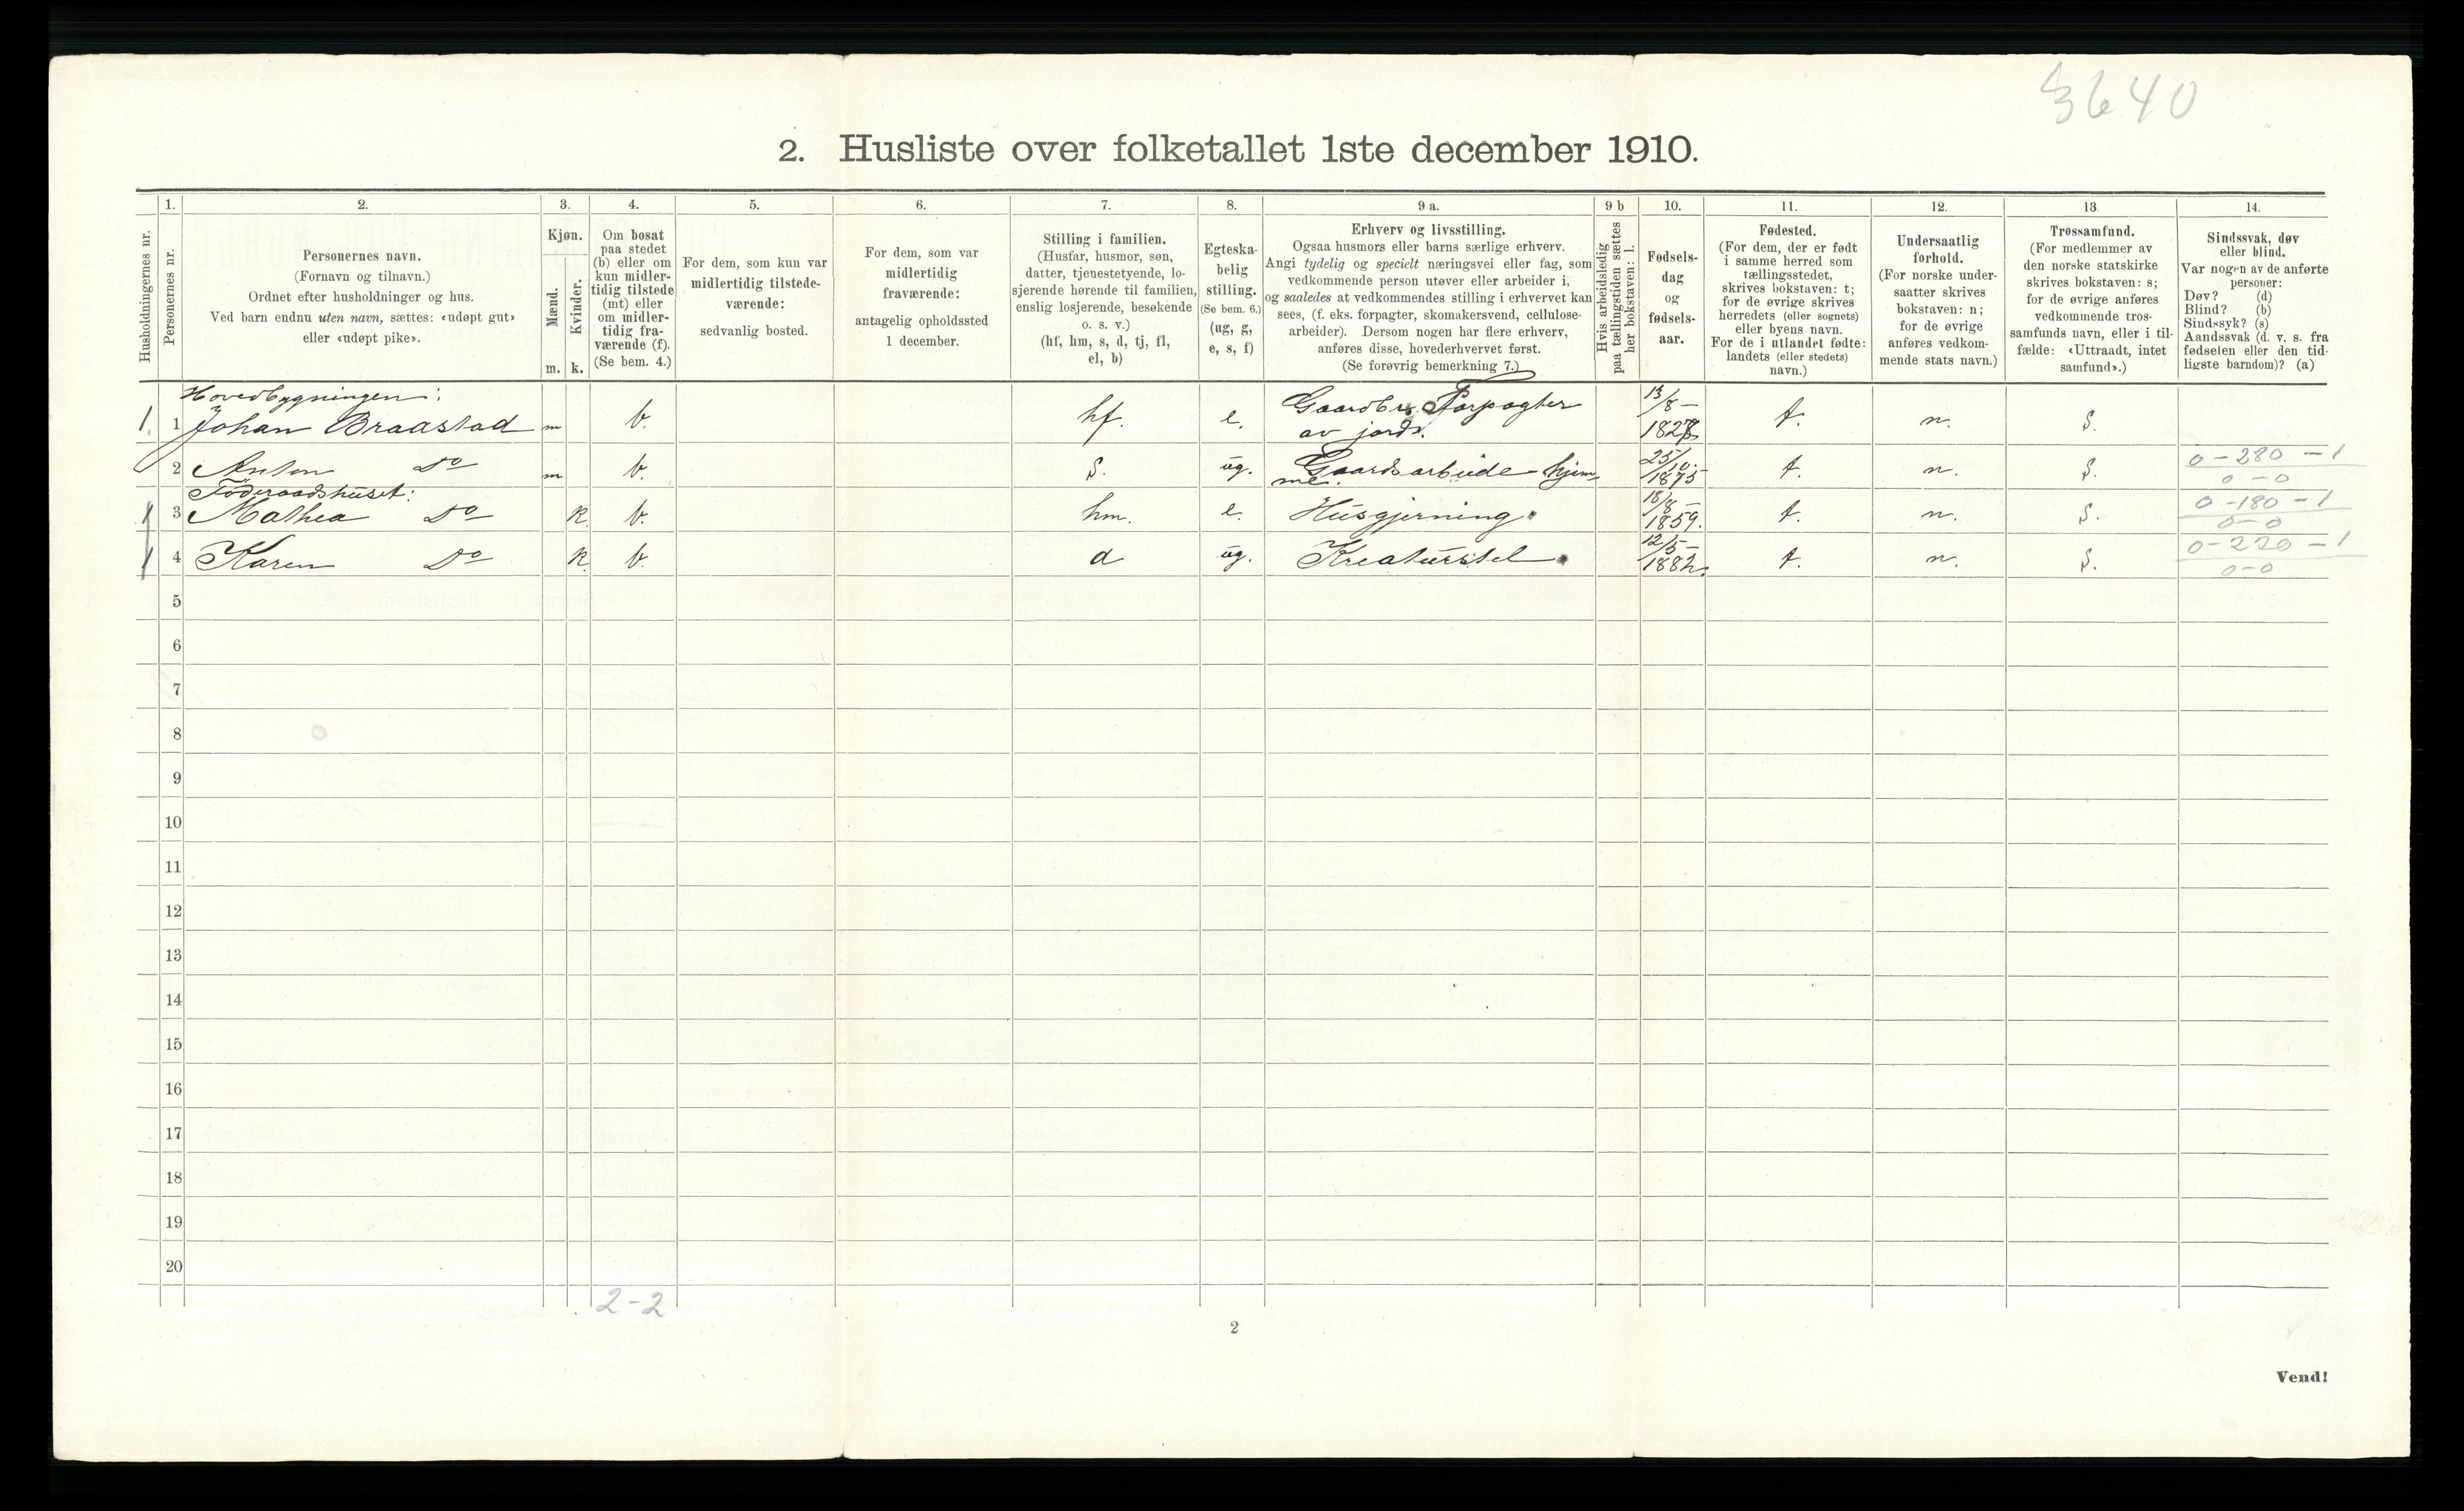 3640
2. Husliste over folketallet 1ste december 1910.
Husholdningernes nr.
1.
Personernes nr.
2.
Personernes navn.
(Fornavn og tilnavn.)
Ordnet efter husholdninger og hus.
Ved barn endnu uten navn, sættes: «udøpt gut»
eller «udøpt pike».
3.
Kjøn.
Mænd.
Kvinder.
m. k.
4.
Om bosat
paa stedet
(b) eller om
kun midler-
tidig tilstede
(mt) eller
om midler-
tidig fra-
værende (f).
(Se bem. 4.)
5.
For dem, som kun var
midlertidig tilstede-
værende:
sedvanlig bosted.
6.
For dem, som var
midlertidig
fraværende:
antagelig opholdssted
1 december.
7.
Stilling i familien.
(Husfar, husmor, søn,
datter, tjenestetyende, lo-
sjerende hørende til familien,
enslig losjerende, besøkende
o. s. v.)
(hf, hm, s, d, tj, fl,
el, b)
8.
Egteska-
belig
stilling.
(Se bem. 6.)
(ug, g,
e, s, f)
9 a.
Erhverv og livsstilling.
Ogsaa husmors eller barns særlige erhverv.
Angi tydelig og specielt næringsvei eller fag, som
vedkommende person utøver eller arbeider i,
og saaledes at vedkommendes stilling i erhvervet kan
sees, (f. eks. forpagter, skomakersvend, cellulose-
arbeider). Dersom nogen har flere erhverv,
anføres disse, hovederhvervet først.
(Se forøvrig bemerkning 7.)
9 b
Hvis arbeidsledig
paa tællingstiden sættes
her bokstaven: l.
10.
Fødsels-
dag
og
fødsels-
aar.
11.
Fødested.
(For dem, der er født
i samme herred som
tællingsstedet,
skrives bokstaven: t;
for de øvrige skrives
herredets (eller sognets)
eller byens navn.
For de i utlandet fødte:
landets (eller stedets)
navn.)
12.
Undersaatlig
forhold.
(For norske under-
saatter skrives
bokstaven: n;
for de øvrige
anføres vedkom-
mende stats navn.)
13.
Trossamfund.
(For medlemmer av
den norske statskirke
skrives bokstaven: s;
for de øvrige anføres
vedkommende tros-
samfunds navn, eller i til-
fælde: «Uttraadt, intet
samfund».)
14.
Sindssvak, døv
eller blind.
Var nogen av de anførte
personer:
Døv? (d)
Blind? (b)
Sindssyk? (s)
Aandssvak (d. v. s. fra
fødselen eller den tid-
ligste barndom)? (a)
Hovedbygningen:
1 1 Johan Braastad m b. hf. e. Gaardbr. Forpagter av jord. 13/8 - t. n. s.
2 Anton Do m b. s. ug. Gaardsarbeide hjemme. 25/10 - 1875 t. n. s. 0-280-1 0-0
Föderaadshuset:
1 3 Mathea Do k. b. hm. e. Husgjerning. 18/8 - 1859. t. n. s. 0-180-1 0-0
1 4 Karen Do k. b. d ug. Kreaturstel. 12/5 - 1882. t. n. s. 0-220-1 0-0
5
6
7
8
9
10
11
12
13
14
15
16
17
18
19
20
2-2
2
Vend!